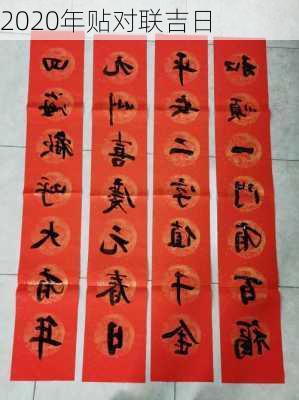 2020年贴对联吉日
和順一門有百福
平安二字值千金
九州喜慶元春日
四海歡呼大有年